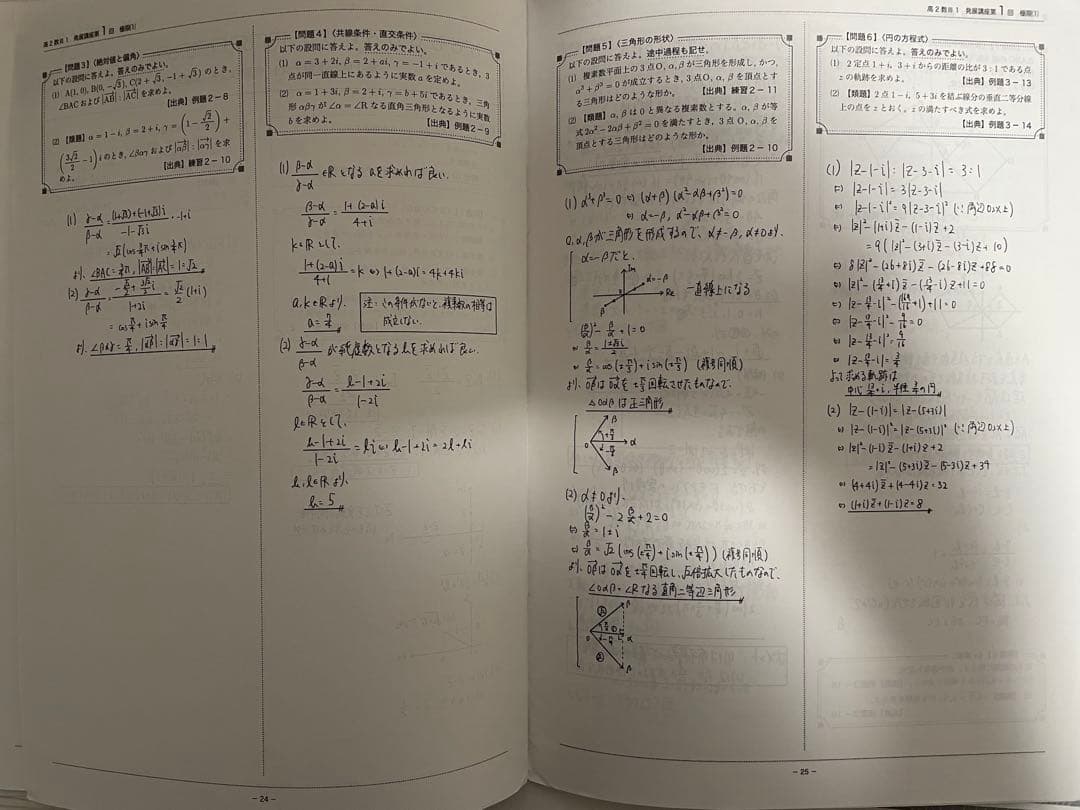 高2数Ⅲ1 発展講座第1回 極限(1)
【問題3】〈絶対値と偏角〉
以下の設問に答えよ。答えのみでよい。
(1) A(1, 0), B(0, −√3), C(2+√3, −1+√3) のとき、
∠BAC および |AB| : |AC| を求めよ。
【出典】例題2−8
(2) 【類題】α=1−i, β=2+i, γ=(1−√2/2)+
(3√2/2−1)i のとき、∠βαγ および |αβ| : |αγ| を求
めよ。
【出典】練習2−10
より、∠BAC=
【問題4】〈共線条件・直交条件〉
以下の設問に答えよ。答えのみでよい。
(1) α=3+2i, β=2+ai, γ=−1+i であるとき、3
点が同一直線上にあるように実数 a を定めよ。
(2) α=1+3i, β=2+i, γ=b+5i であるとき、三角
形 αβγ が ∠α=∠R なる直角三角形となるように実数
b を求めよ。
【出典】例題2−9
(1) (β−α)/(γ−α) ∈R となる aを求めれば良い。
(β−α)/(γ−α) = (1+(2−a)i)/(4+i)
k∈R として、
(1+(2−a)i)/(4+i) = k ⇔ 1+(2−a)i = 4k+ki
a, k∈R より、
a=7/4
注:この条件がないと、複素数の相等は
成立しない。
(2) (γ−α)/(β−α) が純虚数となる bを求めれば良い。
(γ−α)/(β−α) = (b−1+2i)/(1−2i)
l∈R として、
(b−1+2i)/(1−2i) = li ⇔ b−1+2i=2l+li
b, l∈R より、
b=5
− 24 −
【問題5】〈三角形の形状〉
以下の設問に答えよ。途中過程も記せ。
(1) 複素数平面上の3点 O, α, β が三角形を形成し、かつ、
α³+β³=0 が成立するとき、3点 O, α, β を頂点とす
る三角形はどのような形か。
【出典】練習2−11
(2) 【類題】α, β は0と異なる複素数とする。α, β が等
式 2α²−2αβ+β²=0 を満たすとき、3点 O, α, β を
頂点とする三角形はどのような形か。
【出典】例題2−10
(1) α³+β³=0 ⇔ (α+β)(α²−αβ+β²)=0
⇔ α=−β, α²−αβ+β²=0
O, α, βが三角形を形成するので、α≠−β, α≠0より、
α=−βだと、
Im
α=−β
Re
β
一直線上になる
(β/α)²−β/α+1=0
⇔ β/α=(1±√3i)/2
⇔ β/α=cos(±π/3)+i sin(±π/3) (複号同順)
より、Oβは Oαを±π/3回転させたものなので、
△Oαβは正三角形
β
O
α
β
(2) α≠0より、
(β/α)²−2β/α+2=0
⇔ β/α=1±i
⇔ β/α=√2(cos(±π/4)+i sin(±π/4)) (複号同順)
より、Oβは Oαを±π/4回転し、√2倍拡大したものなので、
∠Oαβ=∠Rなる直角二等辺三角形
β
O
α
β
【問題6】〈円の方程式〉
以下の設問に答えよ。答えのみでよい。
(1) 2定点 1+i, 3+i からの距離の比が 3 : 1 である点
z の軌跡を求めよ。
【出典】例題3−13
(2) 【類題】2点 1−i, 5+3i を結ぶ線分の垂直二等分線
上の点を z とおく。z の満たすべき式を求めよ。
【出典】例題3−14
(1) |z−1−i|:|z−3−i|=3:1
⇔ |z−1−i|=3|z−3−i|
⇔ |z−1−i|²=9|z−3−i|² (∵両辺0以上)
⇔ |z|²−(1+i)z̄−(1−i)z+2
=9(|z|²−(3+i)z̄−(3−i)z+10)
⇔ 8|z|²−(26+8i)z̄−(26−8i)z+88=0
⇔ |z|²−(13/4+i)z̄−(13/4−i)z+11=0
⇔ |z−13/4−i|²−(169/16+1)+11=0
⇔ |z−13/4−i|²−9/16=0
⇔ |z−13/4−i|²=9/16
⇔ |z−13/4−i|=3/4
よって求める軌跡は
中心 13/4+i, 半径 3/4の円
(2) |z−(1−i)|=|z−(5+3i)|
⇔ |z−(1−i)|²=|z−(5+3i)|² (∵両辺0以上)
⇔ |z|²−(1−i)z̄−(1+i)z+2
=|z|²−(5+3i)z̄−(5−3i)z+34
⇔ (4+4i)z̄+(4−4i)z=32
⇔ (1+i)z̄+(1−i)z=8
− 25 −